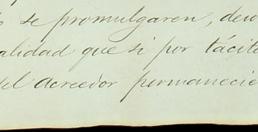 se promulgaren, deno
alidad que si por tácito
del Acreedor permanecie